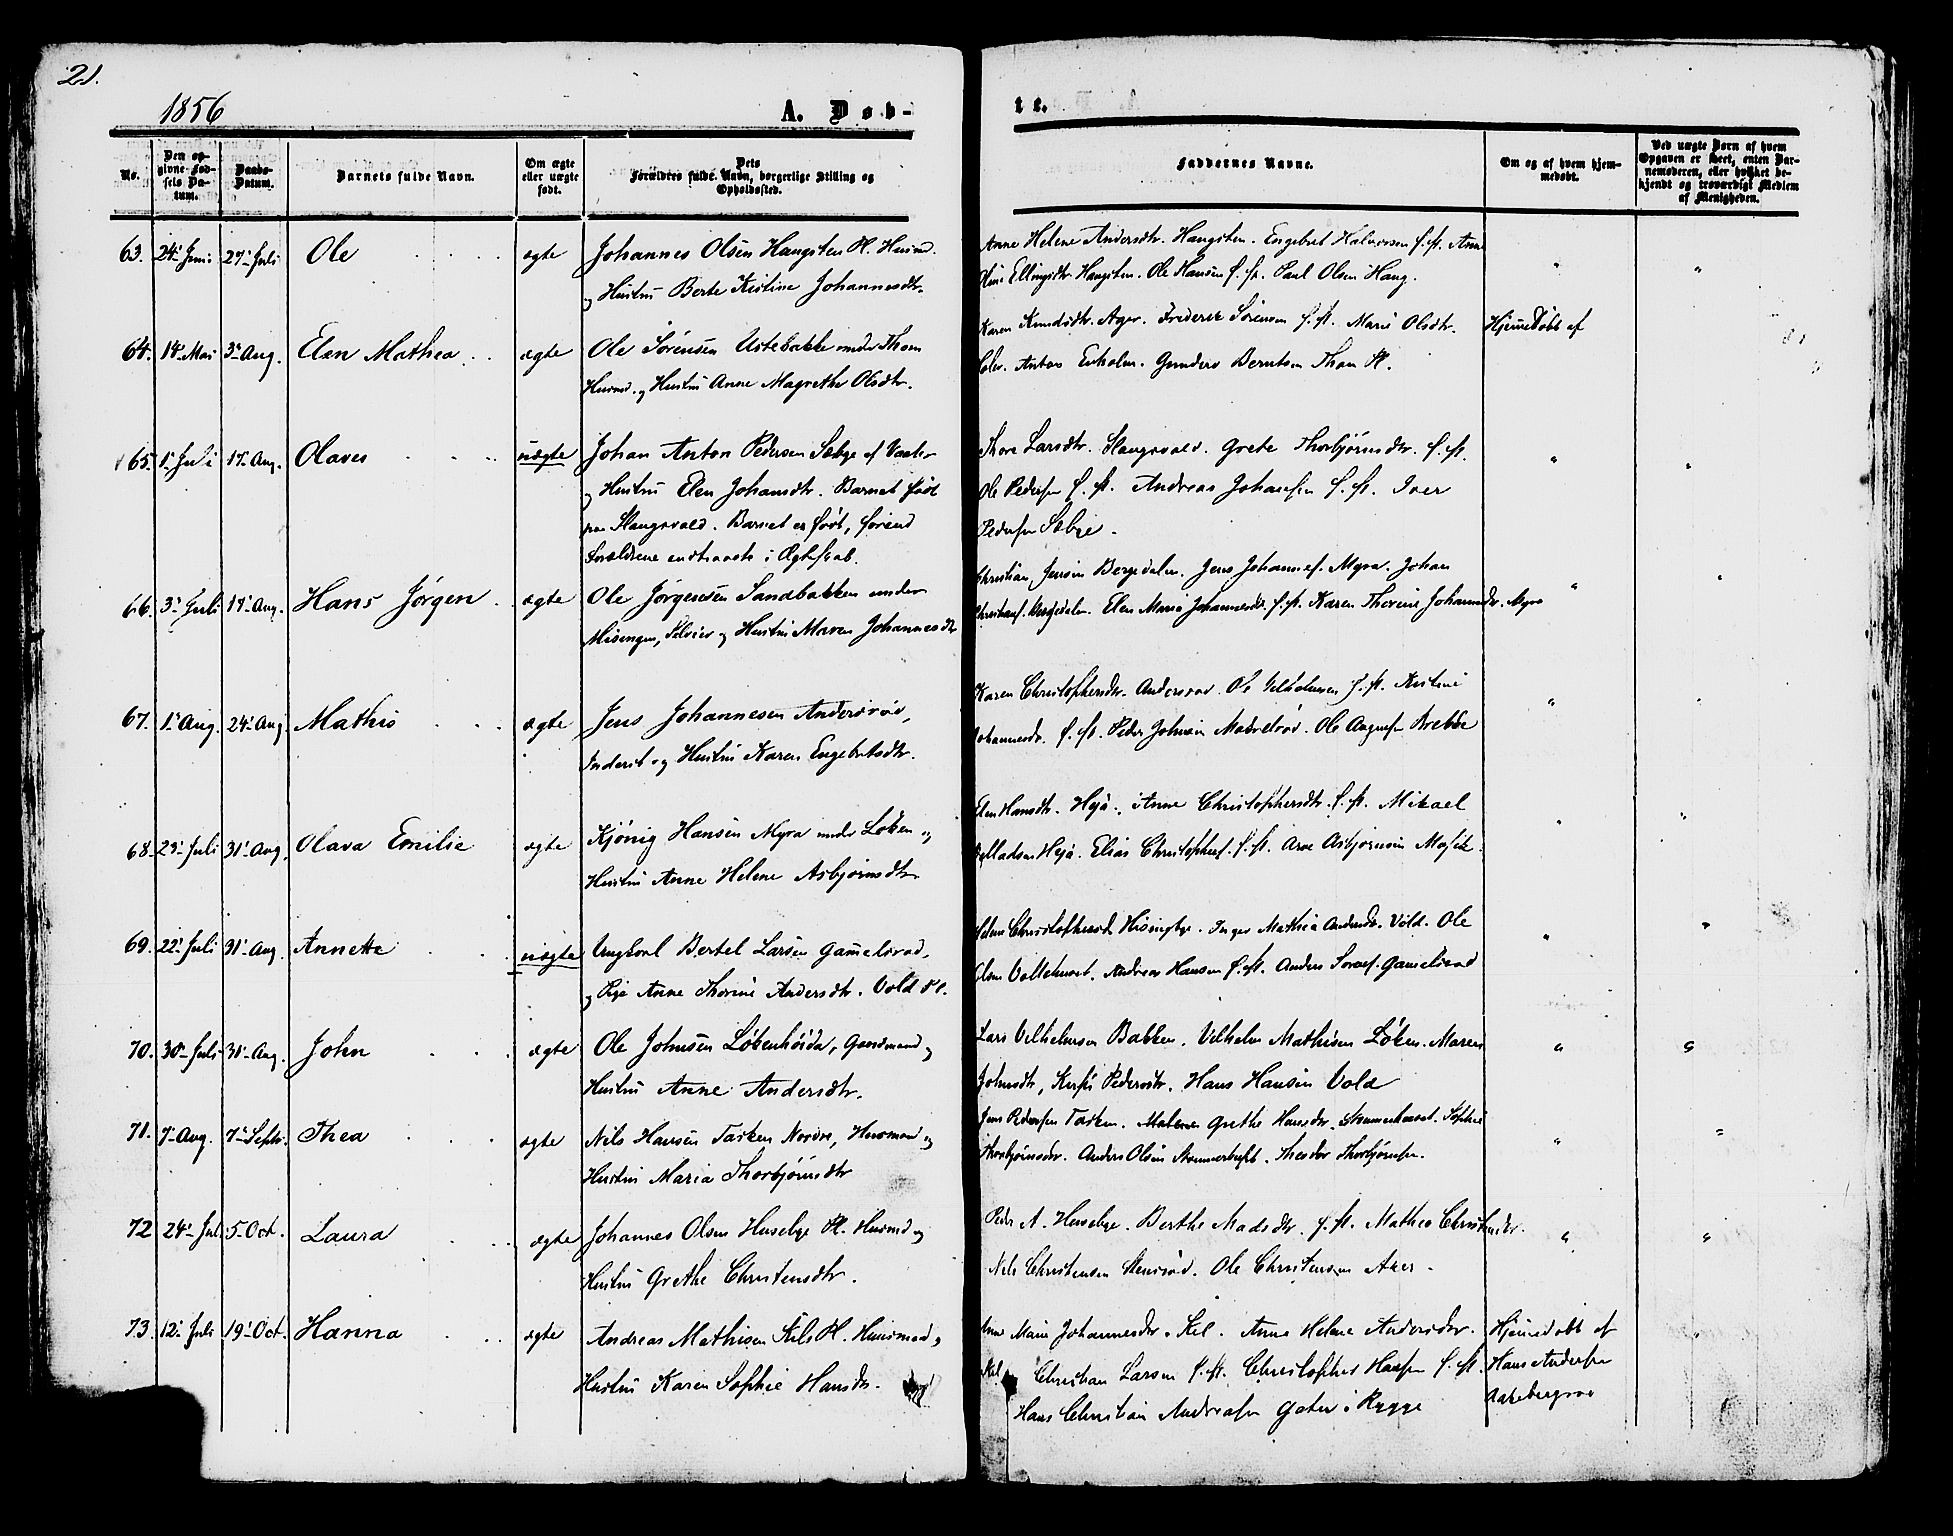 21.
1856
A. Døb-
te.
No.
Den op-
givne Fød-
sels Da-
tum.
Daabs-
Datum.
Barnets fulde Navn.
Om ægte
eller uægte
født.
Dets
Forældres fulde Navn, borgerlige Stilling og
Opholdssted.
Faddernes Navne.
Om og af hvem hjem-
medøbt.
Ved uægte Børn af hvem
Opgaven er skeet, enten Bar-
nemoderen, eller hvilket be-
kjendt og troværdigt Medlem
af Menigheden.
63. 24' Juni 27' Juli Ole ægte Johannes Olsen Haugsten Pl. Husmd.
og Hustru Berte Kistine Johannesdtr.
Anne Helene Andersdtr. Haugsten. Engebret Halvorsen f. st. Anne
Oline Ellingsdtr. Haugsten. Ole Hansen f. st. Paul Olsen Haug.
64. 14' Mai 3' Aug. Elen Mathea ægte Ole Sørensen Østebakke under Thom
Husmd. og Hustru Anne Magrethe Olsdtr.
Karen Knudsdtr. Ager. Frederik Sørensen f. st. Marie Olsdtr.
Anton Exholm. Gunders Berntsen Thom Pl.
Hjemedøbt af
65. 1' Juli 17' Aug. Olaves uægte Johan Anton Pedersen Sæbye af Vaaler
og Hustru Elen Johansdtr. Barnet født
paa Slangsvold. Barnet er født, førend
Forældrene endtraadte i Ægteskab.
Thore Larsdtr. Slangsvold. Grete Thorbjørnsdtr. f. st.
Ole Pedersen f. st. Andreas Johansen f. st. Iver
Pedersen Sæbye.
66. 3' Juli 17' Aug. Hans Jørgen ægte Ole Jørgensen Sandbakken under
Misingen, Selveier og Hustru Maren Johannesdtr
Christian Jensen Bergedalen. Jens Johannes. Myra. Johan
Christians. Bergedalen. Elen Marie Johannesdtr f. st. Karen Therine Johannesdtr. Myra
67. 1' Aug. 24' Aug. Mathis ægte Jens Johannesen Andersrød,
Inderst og Hustru Karen Engebretsdtr.
Karen Christophersdtr. Andersrød. Ole Vilhelmsen f. st. Kistine
Johannesdtr. f. st. Peder Johnsen Ole Augensen Brekke
68. 29' Juli 31' Aug. Olava Emilie ægte Kjønig Hansen Myra under Løken og
Hustru Anne Helene Asbjørnsdtr
Elen Hansdtr. Hejå. Anne Christophersdtr. f. st. Mikael
Hejå. Elias Christophers. f. st. Arne Asbjørnsen
69. 22' Juli 31' Aug. Annette uægte Ungkarl Bertel Larsen Gamelsrød,
og Pige Anne Thorine Andersdtr. Vold Pl.
Inger Mathea Andersdtr. Vold. Ole
Olsen Andreas Hansen f. st. Anders Gamelsrød
70. 30' Juli 31' Aug. John ægte Ole Johnsen Løkenhøida, Gaardmand og
Hustru Anne Andersdtr.
Lars Vilhelmsen Bakken. Vilhelm Mathisen Løken. Maren
Johnsdtr, Pedersdtr. Hans Hansen Vold
71. 7' Aug. 7' Septr. Thea ægte Nils Hansen Tasken Nordre, Husmand og
Hustru Maria Thorbjørnsdtr
Jens Pedersen Tasken. Grethe Hansdtr. Sophie
Thorbjørnsdtr. Anders Olsen Theodor Thorbjørnsen.
72 24' Juli 5' Oct. Laura ægte Johannes Olsen Husebye Pl. Husmd og
Hustru Grethe Christensdtr.
Peder A. Husebye. Berthe Madsdtr. f. st. Mathea Christensdtr.
Nils Christensen Stensrød. Ole Christensen Aker.
73. 12' Juli 19' Oct. Hanna ægte Andreas Mathisen Kils Pl. Husmand og
Hustru Karen Sophie Hansdtr.
Anne Marie Johannesdtr. Kil. Anne Helene Andersdtr.
Kil Christian Larsen f. st. Christopher Hansen f. st.
Hans Christian Andreasen Gaten i Rygge
Hjemedøbt af
Hans Andersen
Aakebergmo